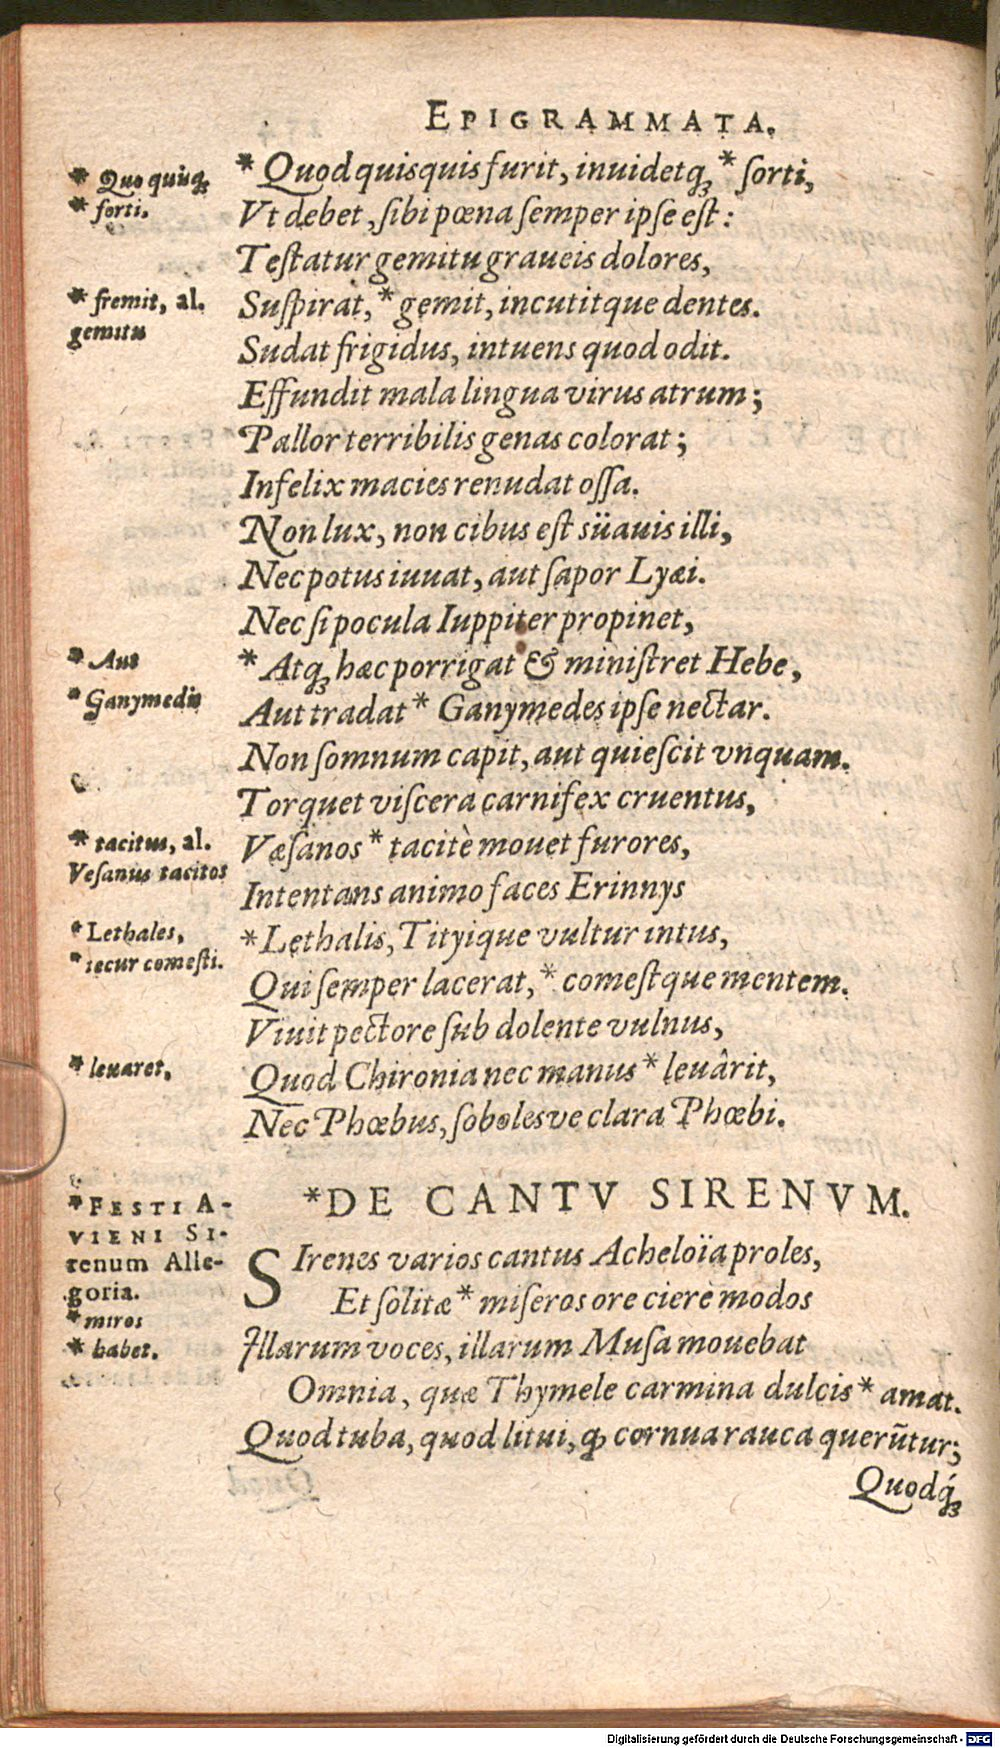 EPIGRAMMATA.
* Quo quiuqꝫ
* forti.
* fremit, al.
gemitu
* Aut
* Ganymedis
* tacitus, al.
Vesanus tacitos
* Lethales,
* iecur comesti.
* leuaret,
* FESTI A-
VIENI SI-
renum Alle-
goria.
* miros
* habet.
* Quod quisquis furit, inuidetqꝫ * ſorti,
Vt debet, ſibi pœna ſemper ipſe eſt:
Teſtatur gemitu graueis dolores,
Suſpirat, * gemit, incutitque dentes.
Sudat frigidus, intuens quod odit.
Effundit mala lingua virus atrum;
Pallor terribilis genas colorat;
Infelix macies renudat oſſa.
Non lux, non cibus eſt süauis illi,
Nec potus iuuat, aut ſapor Lyæi.
Nec ſi pocula Iuppiter propinet,
* Atqꝫ hæc porrigat & miniſtret Hebe,
Aut tradat * Ganymedes ipſe nectar.
Non ſomnum capit, aut quieſcit vnquam.
Torquet viſcera carnifex cruentus,
Væſanos * tacitè mouet furores,
Intentans animo faces Erinnys
* Lethalis, Tityique vultur intus,
Qui ſemper lacerat, * comeſtque mentem.
Viuit pectore ſub dolente vulnus,
Quod Chironia nec manus * leuârit,
Nec Phœbus, ſobolesve clara Phœbi.
* DE CANTV SIRENVM.
SIrenes varios cantus Acheloïa proles,
Et ſolitæ * miſeros ore ciere modos
Illarum voces, illarum Muſa mouebat
Omnia, quæ Thymele carmina dulcis * amat.
Quod tuba, quod litui, ꝙ cornua rauca querūtur;
Quodqꝫ́
Digitalisierung gefördert durch die Deutsche Forschungsgemeinschaft - DFG